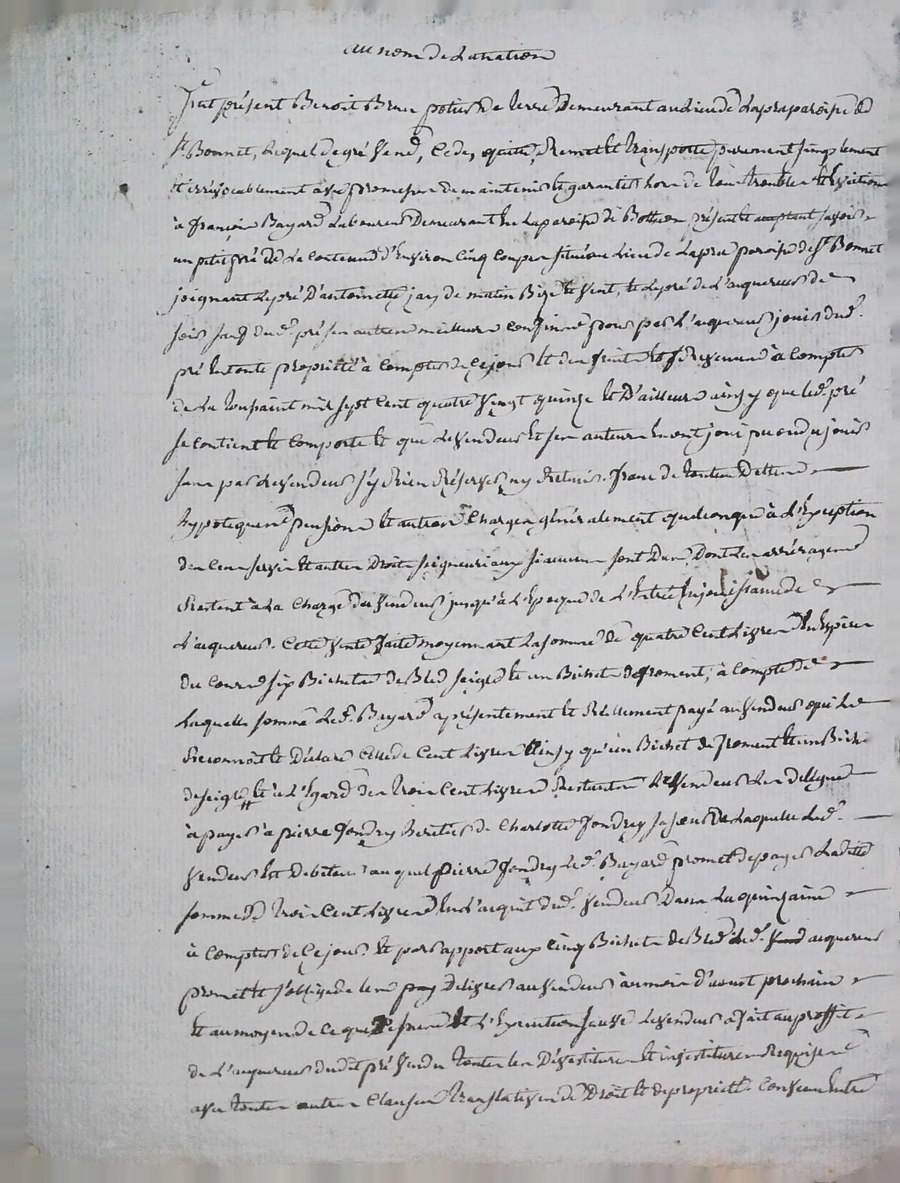 au nom de la nation
Fut présent Benoit Brun potier de terre Demeurant au Lieu de Lapra paroisse de
St. Bonnet, Lequel de gré Vend, Cede, quitte, Remet et transporte purement simplement
et irrévocablement avec promesse de maintenir et garantir hors de tous troubles et Eviction
à françois Bayard Laboureur Demeurant En La paroisse de présent et acceptant savoir
un petit pré de La Contenue d'Environ Cinq Coupes situé au Lieu de Lapra paroisse de St. Bonnet
joignant Le pré D'antoinette de matin Bize et Vent, et Le pré de L'aquereur de
soir sauf dud. pré ses autres meilleurs Confins pour par L'aquereur jouir dud.
pré En toute propriété à Compter de Ce jour Et des fruits et Revenus à Compter
de La toussaint mil sept Cent quatre Vingt quinze Et D'ailleurs ainsy que Led. pré
se Contient et Comporte Et que Le Vendeur Et ses auteurs En ont joui pu ou du jouir
sans par Le Vendeur s'y Rien Réserver ny Retenir. franc de toutes Dettes
hypoteques pensions Et autres Charges généralement quelconques à L'Exception
des Cens servis Et autres Droits seigneuriaux si aucuns sont Dus Dont Les arrérages
Restent à La Charge du Vendeur jusqu'à L'Epoque de L'Entrée En jouissance de
L'aquereur. Cette Vente faite moyennant La somme de quatre Cent Livres En Espèces
du Cours six Bichets de Bled seigle et un Bichet de froment, à Compte de
Laquelle somme Led. Bayard a présentement et Réellement payé au Vendeur qui Le
Reconnoit et Déclare Celle de Cent Livres Ainsy qu'un Bichet de froment et un Bichet
de seigle, et à L'Egard des trois Cent Livres Restantes Le Vendeur Les Délègue
à payer à pierre fondrey héritier de Charlotte fondrey sa sœur de Laquelle Led.
Vendeur Est débiteur auquel pierre fondrey Led. Bayard promet de payer La ditte
somme de trois Cent Livres En L'acquit dud. Vendeur Dans La quinzaine
à Compter de Ce jour. Et par rapport aux Cinq Bichets de Bled Led. aquereur
promet et s'oblige de Les Délivrer au Vendeur au mois d'aoust prochain
Et au moyen de Ce que Dessus Et L'Exécution sauve Le Vendeur a fait au proffit
de L'aquereur du dit pré Vendu toutes Les Dévestitures Et investitures Requises
avec toutes autres Clauses translatives de Droit et de propriété. Convenu Entre